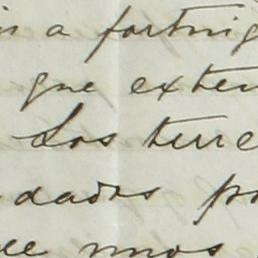 is a fortnig
que exten
Los terre
dados po
de unos